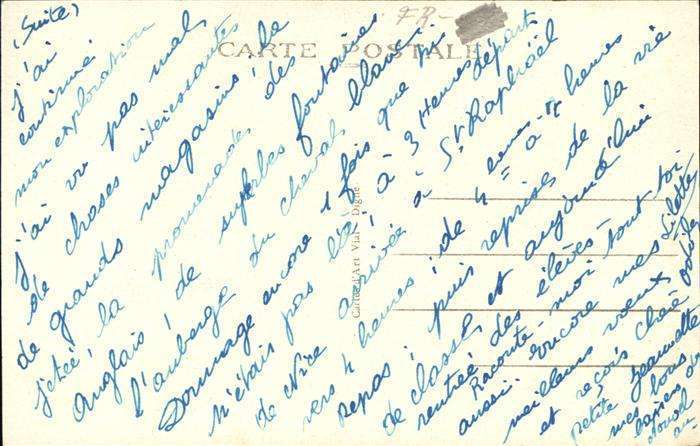 FR-
CARTE POSTALE
Cartes d'Art Vial - Digne
(Suite)
J'ai
continué
mon exploration
J'ai vu pas mal
de choses intéressantes
de grands magasins, la
jetée, la promenade des
Anglais, de superbes fontaines
l'auberge du cheval blanc.
Dommage encore 1 fois que tu
n'étais pas là! à 3 Heures départ
de Nice arrivée à St Raphaël
vers 4 heures, de 4 heures à heures
repas, puis reprise de la vie
de classe et aujourd'hui
rentrée des élèves -
Raconte-moi tout toi
aussi. Encore mes
meilleurs voeux
et reçois chère
petite Jeannette
mes bons
baisers